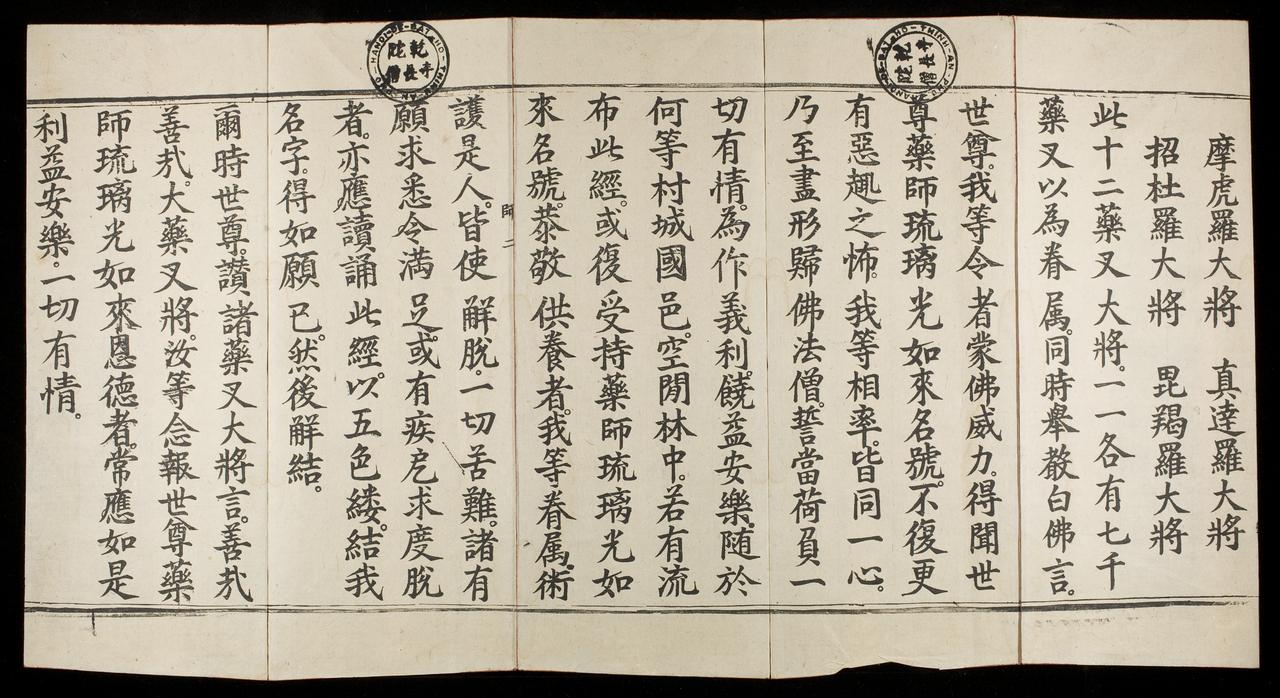 摩虎羅大將　真達羅大將
招杜羅大將　毘羯羅大將
此十二藥叉大將。一一各有七千
藥叉以為眷属。同時舉聲白佛言。
世尊。我等令者蒙佛威力。得聞世
尊藥師琉璃光如來名號。不復更
有惡趣之怖。我等相率。皆同一心。
乃至盡形歸佛法僧。誓當荷負一
切有情。為作義利。饒益安樂。随於
何等村城國邑。空閒林中。若有流
布此經。或復受持藥師琉璃光如
來名號。恭敬供養者。我等眷属。衛
師二
護是人。皆使解脫。一切苦難。諸有
願求悉令满足。或有疾厄求度脫
者。亦應讀誦此經。以五色縷。結我
名字。得如願已。然後解結。
爾時世尊。讃諸藥叉大將言。善㦲
善㦲。大藥叉將。汝等念報世尊藥
師琉璃光如來恩德者。常應如是
利益安樂。一切有情。
乾陀長年僧
乾陀長年僧